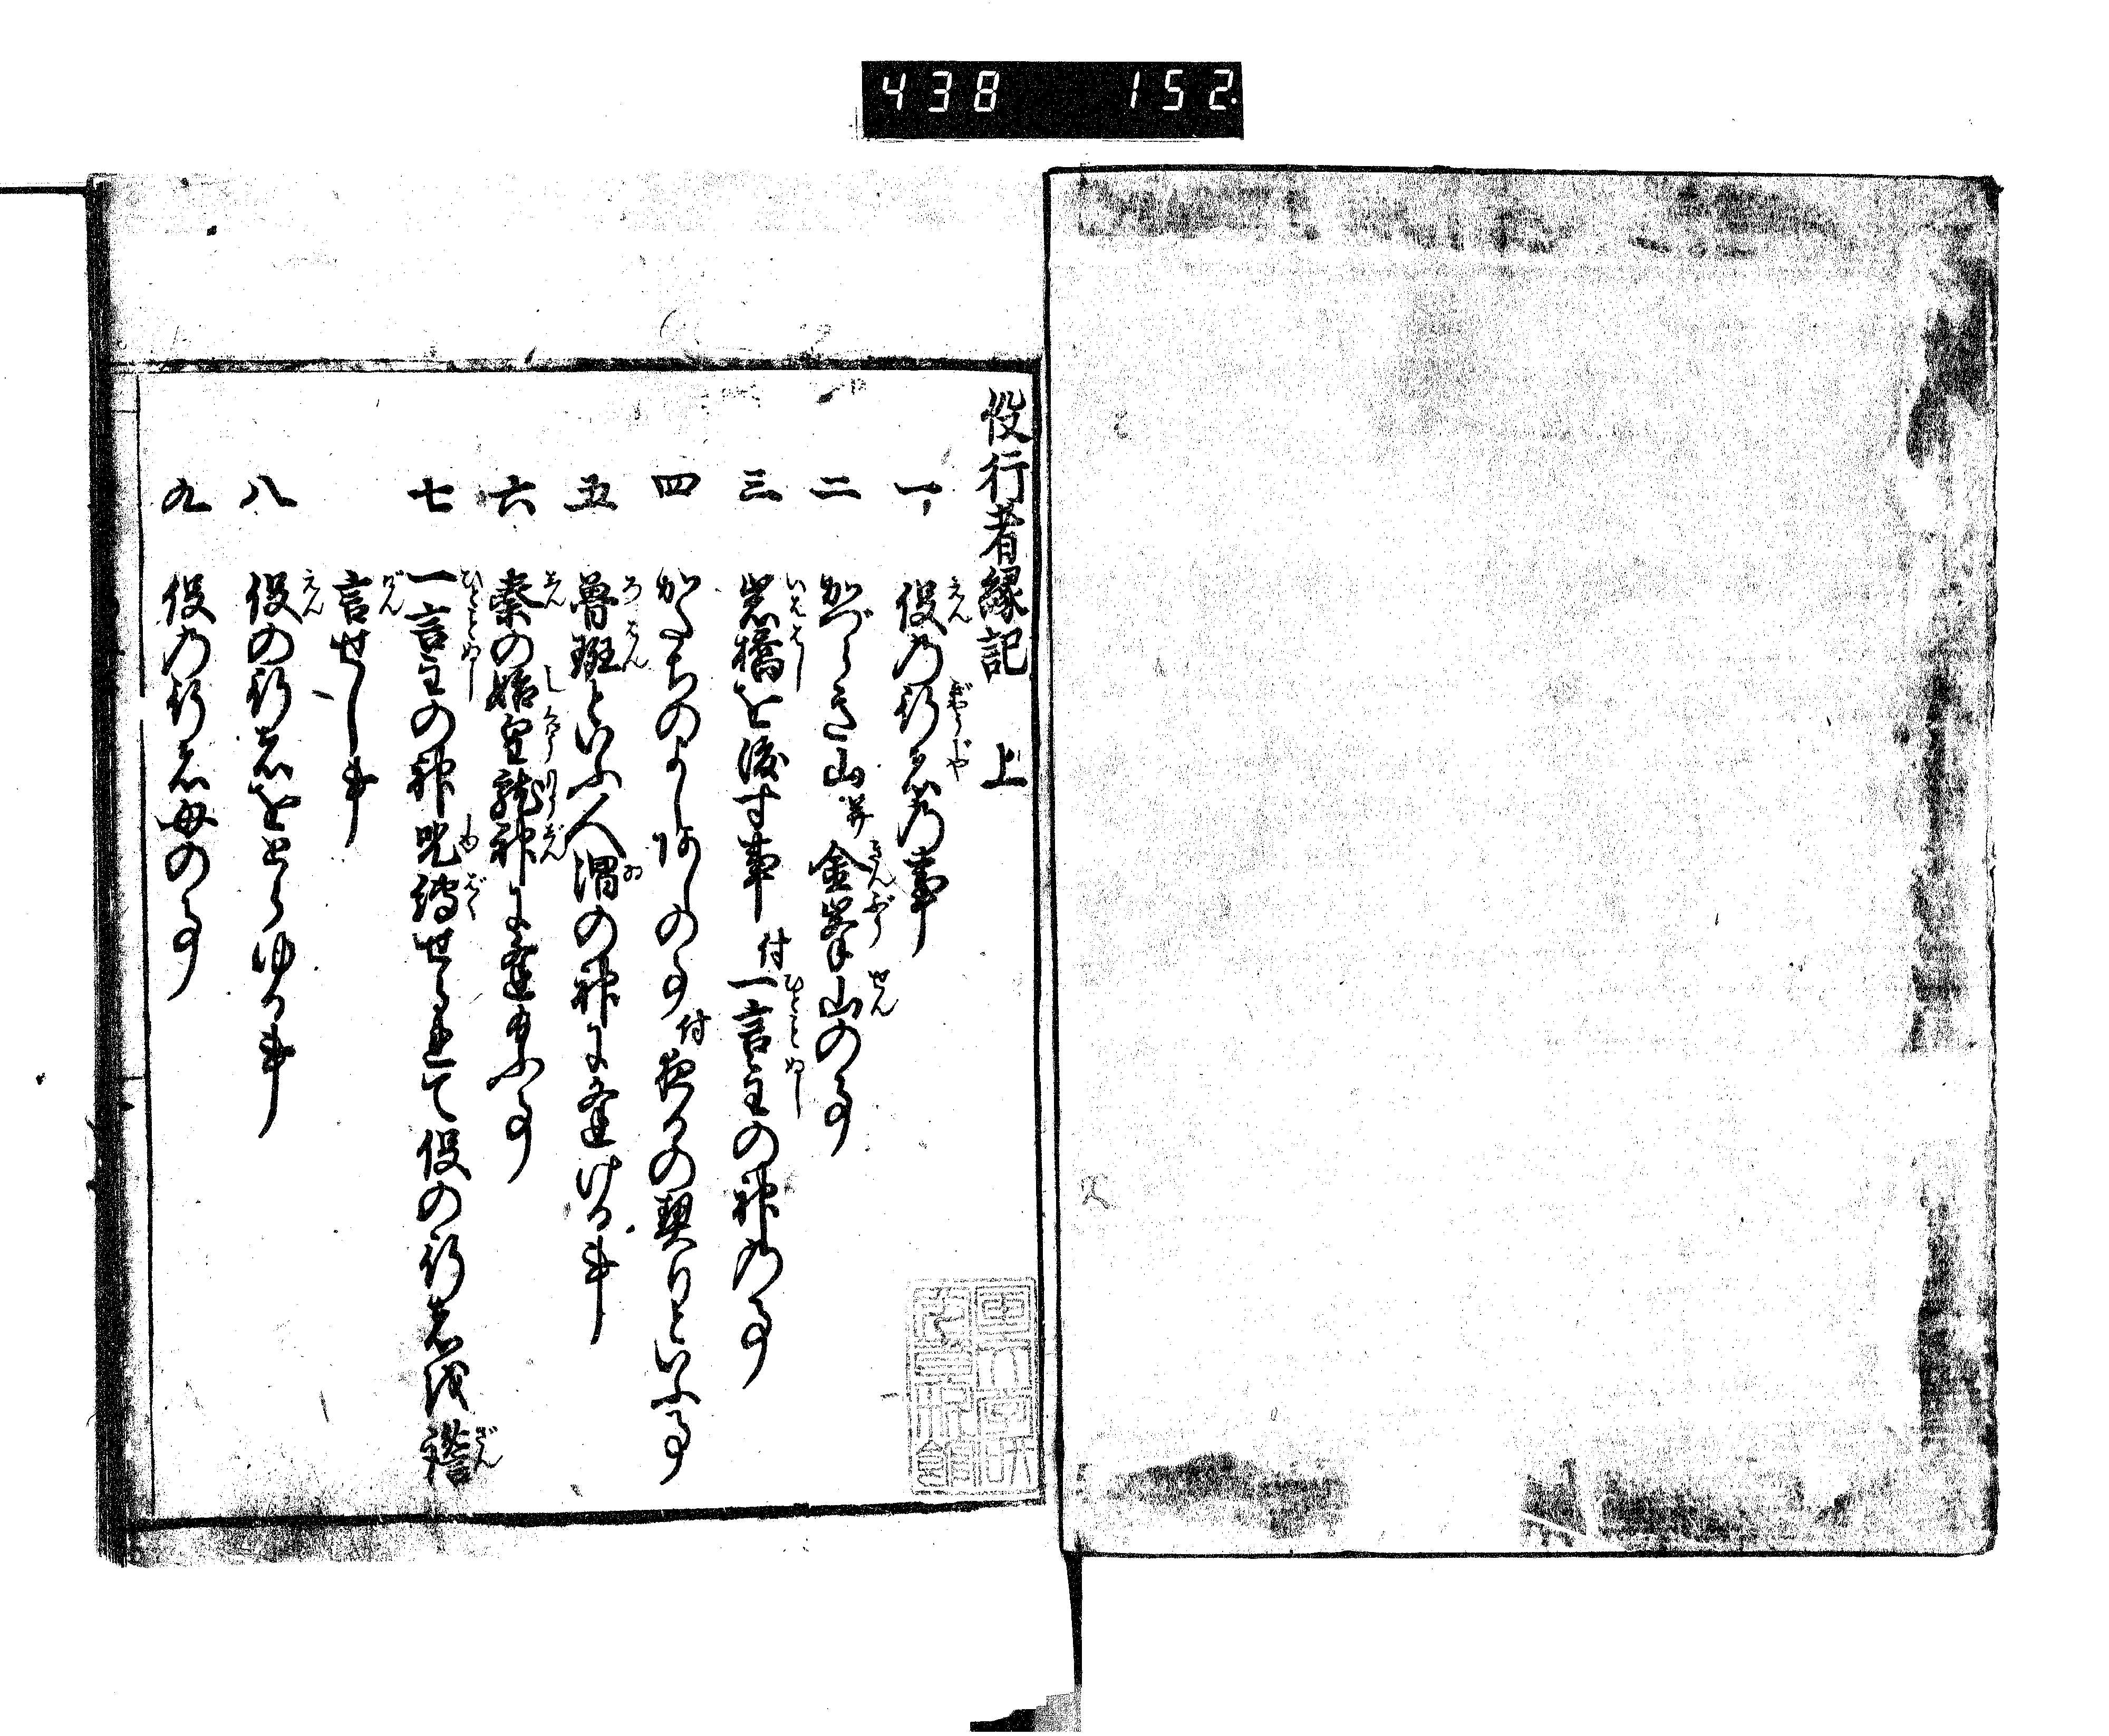 438 152
役行者縁記 上
一 役乃行者乃事
二 かづらき山并金峯山の事
三 岩橋を渡す事付一言主の神乃事
四 かたちのよしあしの事付夜るの契りといふ事
五 魯班といふ人渭の神に逢ける事
六 秦の始皇龍神に逢給ふ事
七 一言主の神呪縛せられて役の行者を讒
言せし事
八 役の行者をとらゆる事
九 役乃行者母の事